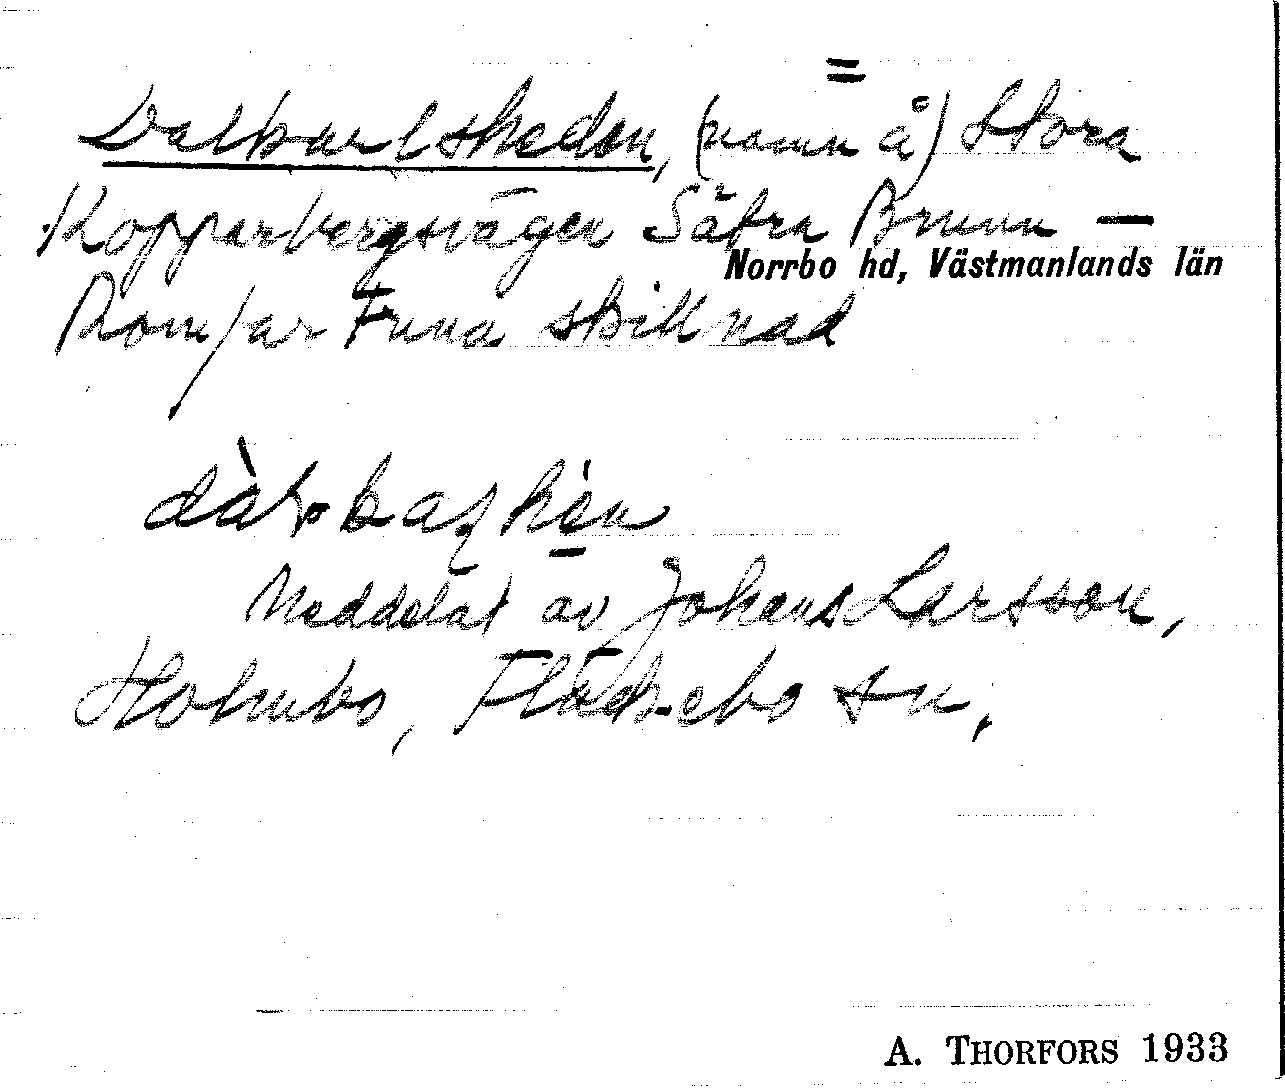 =
Dalkarlsheden, (namn å) Stora
Kopparbergsvägen Sätra Brunn —
Norrbo hd, Västmanlands län
Romfartuna skillnad
Meddelat av Johans Larsson,
Holmbo, Fläckebo sn.
A. THORFORS 1933